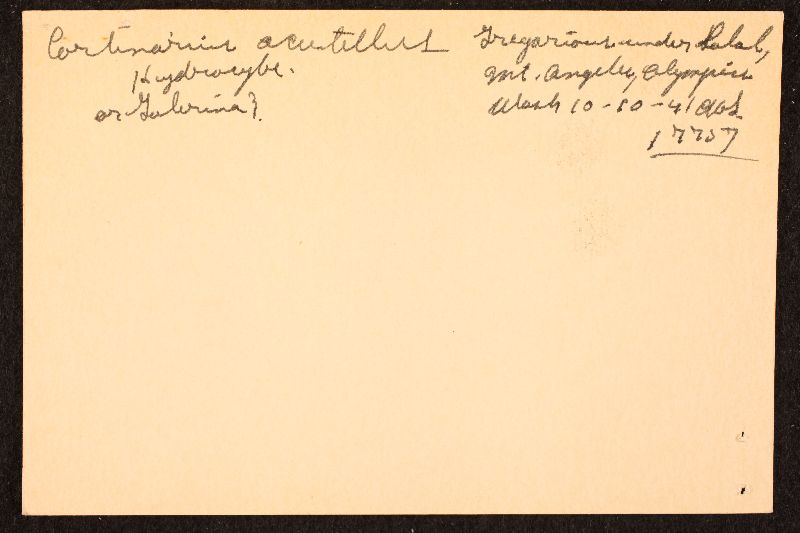 Cortinarius acutellus
Hydrocybe.
or Galerina?
Gregarious under Salal,
Mt. Angeles, Olympics
Wash 10-10-41 AHS
17757